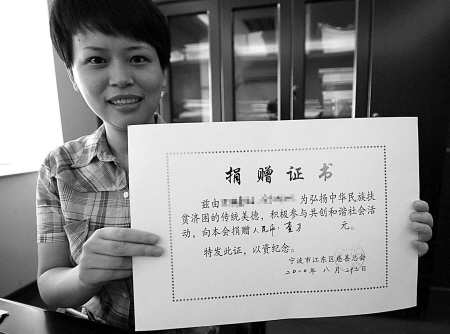 捐赠证书
兹由 为弘扬中华民族扶
贫济困的传统美德，积极参与共创和谐社会活
动，向本会捐赠人民币壹万 元。
特发此证，以资纪念。
宁波市江东区慈善总会
二〇一〇年 八 月 日